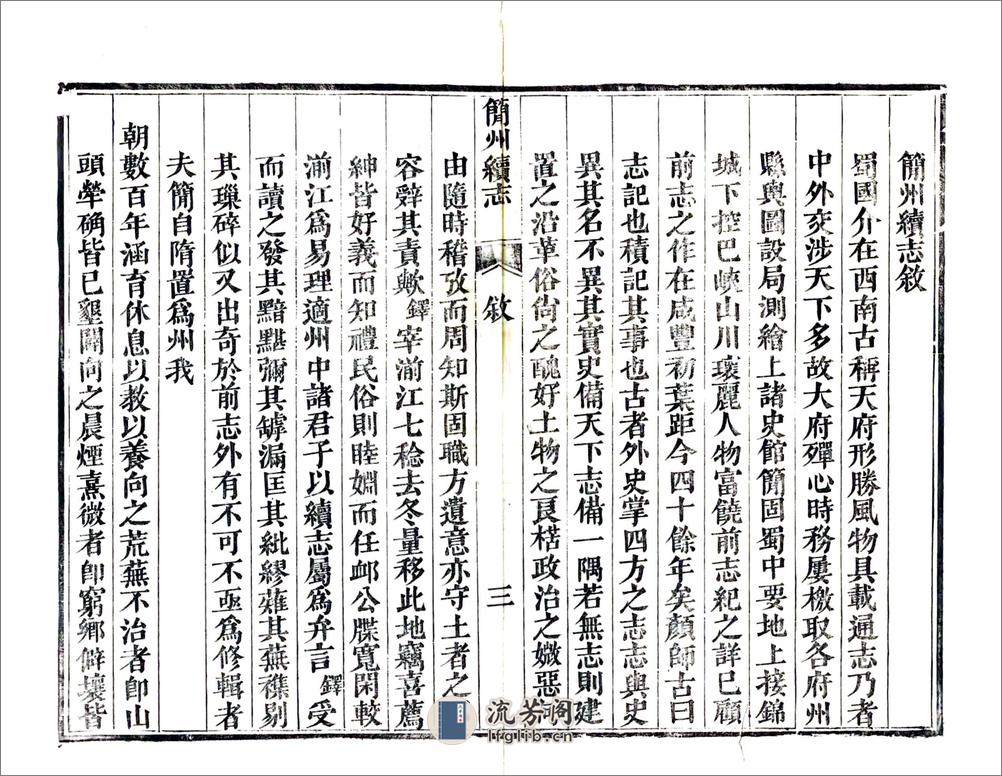 簡州續志敘
蜀國介在西南古稱天府形勝風物具載通志乃者
中外交涉天下多故大府殫心時務屢檄取各府州
縣輿圖設局測繪上諸史館簡固蜀中要地上接錦
城下控巴峽山川瓌麗人物富饒前志紀之詳已顧
前志之作在咸豐初葉距今四十餘年矣顏師古曰
志記也積記其事也古者外史掌四方之志志與史
異其名不異其實史備天下志備一隅若無志則建
置之沿革俗尙之醜好土物之良楛政治之媺惡何
簡州續志 敘 三
由隨時稽攷而周知斯固職方遺意亦守土者之
容辭其責歟鐸宰湔江七稔去冬量移此地竊喜薦
紳皆好義而知禮民俗則睦婣而任卹公牒寬閑較
湔江爲易理適州中諸君子以續志屬爲弁言鐸受
而讀之發其黯黮彌其罅漏匡其紕繆薙其蕪穢剔
其璅碎似又出奇於前志外有不可不亟爲修輯者
夫簡自隋置爲州我
朝數百年涵育休息以教以養向之荒蕪不治者卽山
頭犖确皆已墾闢向之晨煙熹微者卽窮鄉僻壤皆
流芳阁
lfglib.cn